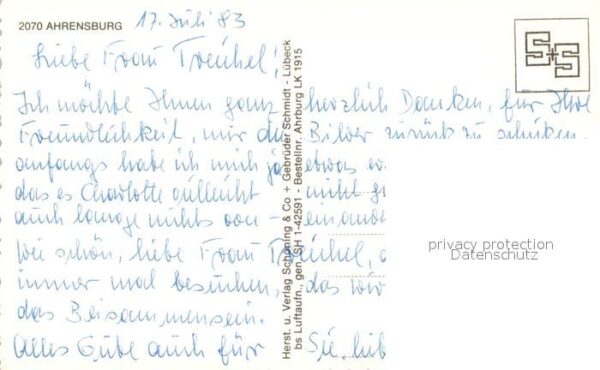 2070 AHRENSBURG 17. Juli 83
Liebe Frau Treukel!
Ich möchte Ihnen ganz herzlich Danken, für Ihre
Freundlichkeit, mir die Bilder zurück zu schicken.
anfangs habe ich mich ja etwas
das es Charlotte vielleicht nicht
auch lange nichts von-einander
Wie schön, liebe Frau Treukel,
immer mal besuchen, das wir
das Beisammensein.
Alles Gute auch für Sie, lieb
Herst. u. Verlag Schöning & Co + Gebrüder Schmidt - Lübeck
bs Luftaufn., gen. SH 1-42591 - Bestellnr. Ahrburg LK 1915
S+S
privacy protection
Datenschutz